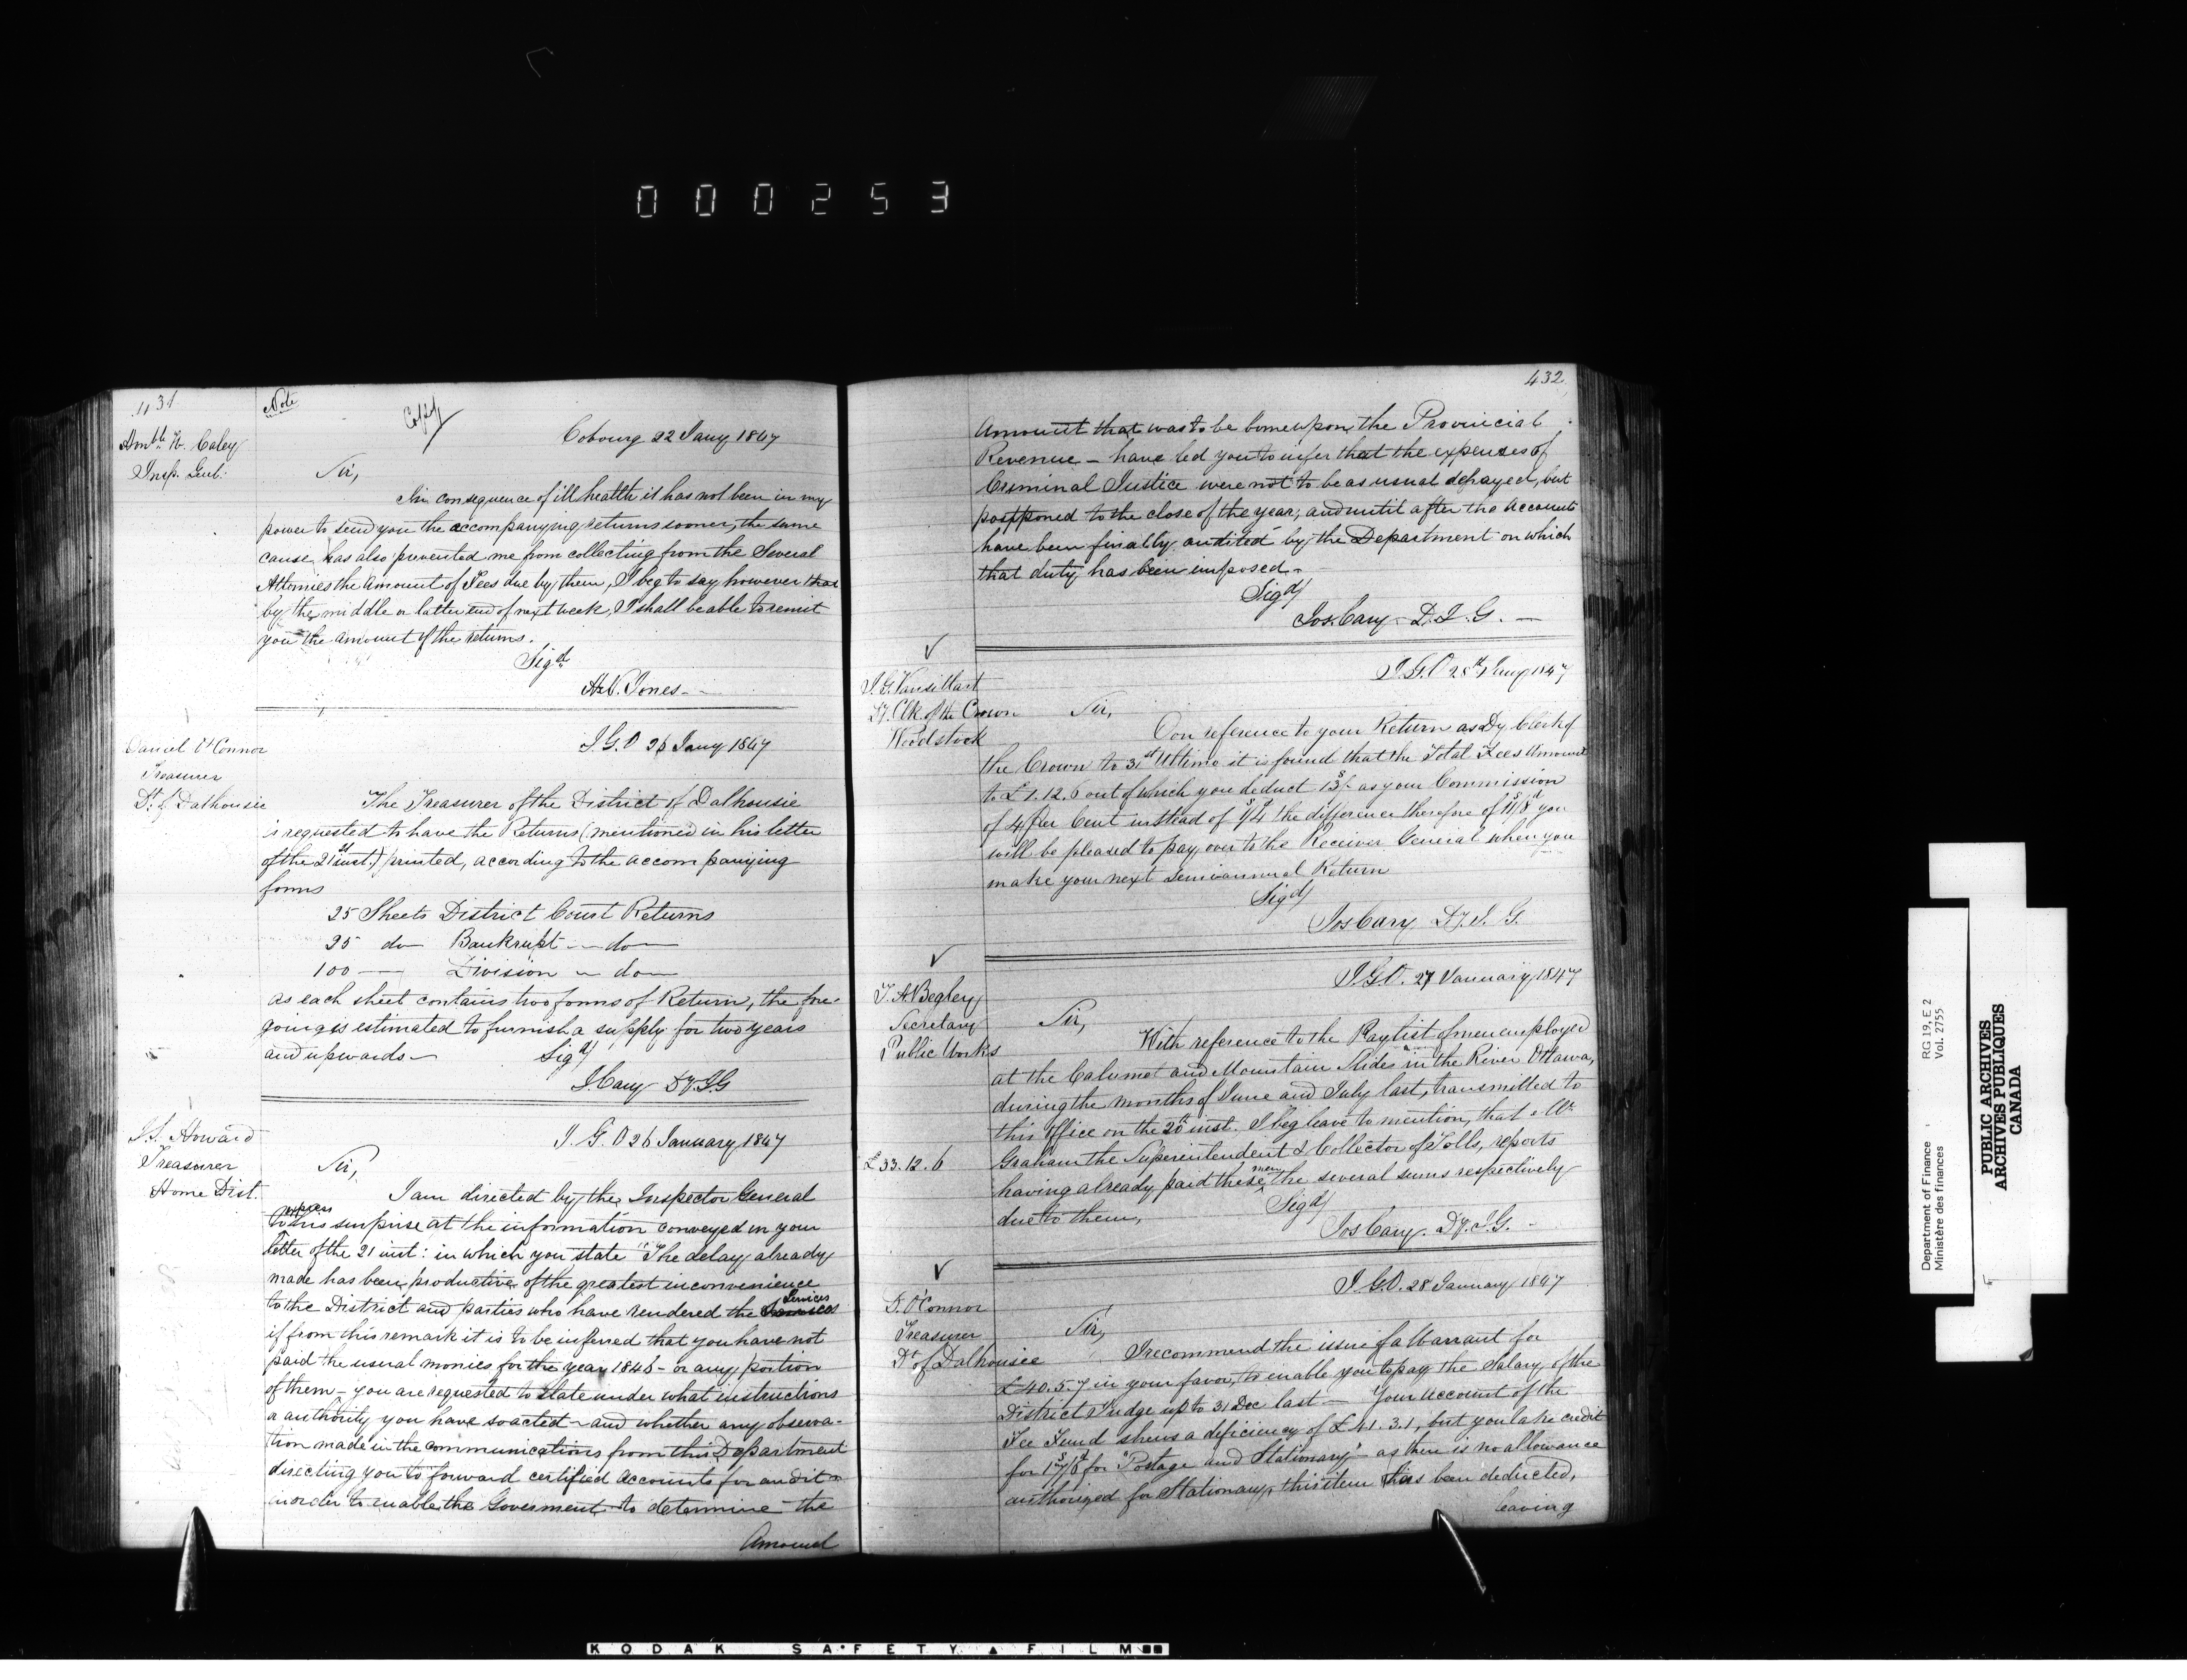 000253
431
Note
Copy
Honble W. Caley
Insp. Genl:
Cobourg 22 Jany 1847
Sir,
In consequence of ill health it has not been in my
power to send you the accompanying returns sooner, the same
cause has also prevented me from collecting from the Several
Attornies the Amount of Fees due by them, I beg to say however that
by the middle or latter end of next week, I shall be able to remit
you the amount of the returns.
Sigd
H. V. Jones
Daniel O'Connor
Treasurer
Dt. of Dalhousie
I.G.O 26 Jany 1847
The Treasurer of the District of Dalhousie
is requested to have the Returns (mentioned in his letter
of the 21st inst.) printed, according to the accompanying
forms
25 Sheets District Court Returns
25 do Bankrupt do
100 — Division do
as each sheet contains two forms of Return, the fore-
going is estimated to furnish a supply for two years
and upwards—
Sigd/
J. Cary Dy. I G
J.S. Howard
Treasurer
Home Dist.
I. G. O 26 January 1847
Sir,
I am directed by the Inspector General
to express his surprise at the information conveyed in your
letter of the 21 inst: in which you state "The delay already
made has been productive of the greatest inconvenience
to the District and parties who have rendered the Services
if from this remark it is to be inferred that you have not
paid the usual monies for the year 1846 - or any portion
of them - you are requested to state under what instructions
or authority you have so acted - and whether any observa-
tion made in the communications from this Department
directing you to forward certified Accounts for audit
in order to enable the Goverment to determine the
Amount
432
Amount that was to be borne upon the Provincial
Revenue - have led you to infer that the expenses of
Criminal Justice were not to be as usual defrayed, but
postponed to the close of the year; and until after the Accounts
have been finally audited by the Department on which
that duty has been imposed.
Sigd/
Jos. Cary D. I. G. —
J. G. Vansittart
Dy. Clk of the Crown
Woodstock
I.G.O 28th Jany 1847
Sir,
On reference to your Return as Dy Clerk of
the Crown to 31st Ultimo it is found that the Total Fees Amount
to £1.12.6 out of which you deduct 13s/- as your Commission
of 4 per Cent instead of 1s/4d the difference therefore of 11s/8d you
will be pleased to pay over to the Receiver General when you
make your next Semiannual Return
Sigd/
Jos Cary Dy. I. G.
T. A. Begley
Secretary
Public Works
£33.12.6
I.G.O. 27 January 1847
Sir,
With reference to the Paylist of men employed
at the Calumet and Mountain Slides in the River Ottawa,
during the months of June and July last, transmitted to
this Office on the 20th inst. I beg leave to mention, that Mr.
Graham the Superintendent & Collector of Tolls, reports
having already paid these men the several sums respectively
due to them,
Sigd/
Jos Cary. Dy. I.G. -
D. O'Connor
Treasurer
Dt of Dalhousie
I.G.O. 28 January 1847
Sir,
I recommend the issue of a Warrant for
£40.5.7 in your favor, to enable you to pay the Salary of the
District Judge up to 31 Dec last — Your Account of the
Fee Fund shews a deficiency of £41.3.1, but you take credit
for 17s/6d for "Postage and Stationary" - as there is no allowance
authorized for Stationary, this item has been deducted,
leaving
Department of Finance
Ministère des finances
RG 19, E 2
Vol. 2755
PUBLIC ARCHIVES
ARCHIVES PUBLIQUES
CANADA
KODAK SAFETY FILM